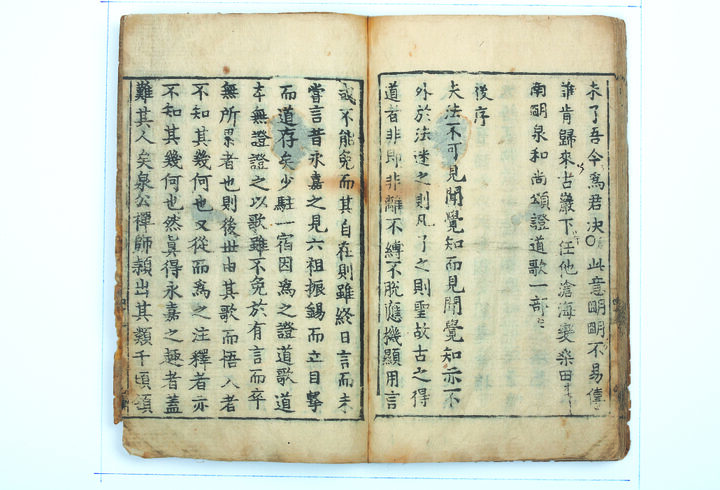 未了吾今爲君决〇此意明明不易傳
誰肯歸來古巖下任他滄海變桒田
南明泉和尚頌證道歌一部
後序
夫法不可見聞覺知而見聞覺知亦不
外於法迷之則凡了之則聖故古之得
道者非即非離不縛不脫應機顯用言
或不能免而其自在則雖終日言而未
嘗言昔永嘉之見六祖振錫而立目擊
而道存矣少駐一宿因爲之證道歌道
本無證證之以歌雖不免於有言而卒
無所累者也則後世由其歌而悟入者
不知其幾何也又從而爲之注釋者亦
不知其幾何也然眞得永嘉之趣者蓋
難其人矣泉公禪師頴出其類千頃頌